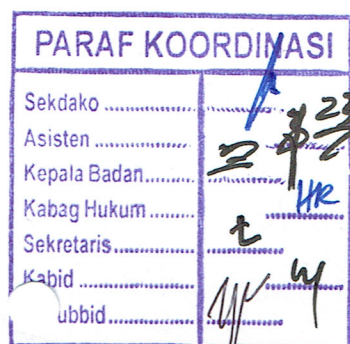 PARAF KOORDINASI
Sekdako ..................
Asisten ..................
Kepala Badan..........
Kabag Hukum.......... HR
Sekretaris................
Kabid ......................
ubbid..................